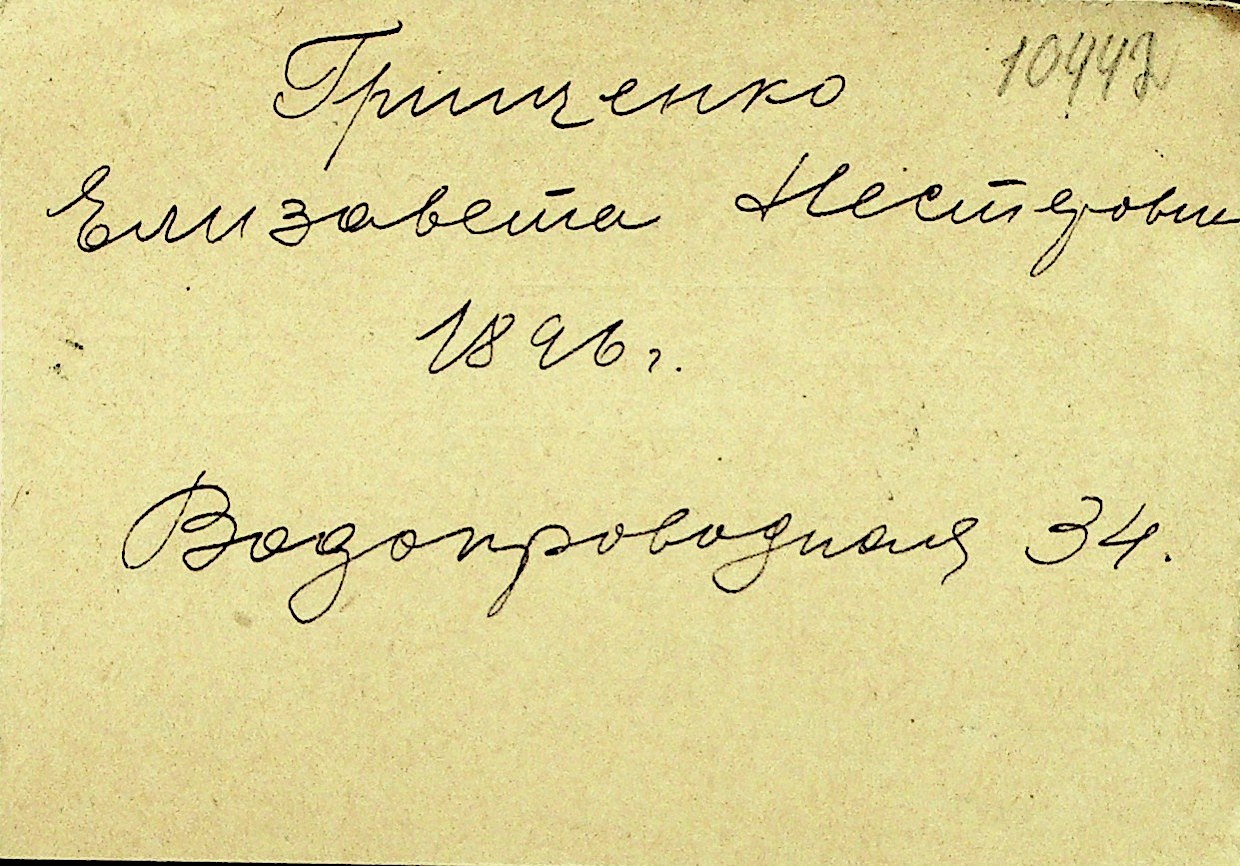 Грищенко
Елизавета Нестеровн
1896 г.
Водопроводная 34.